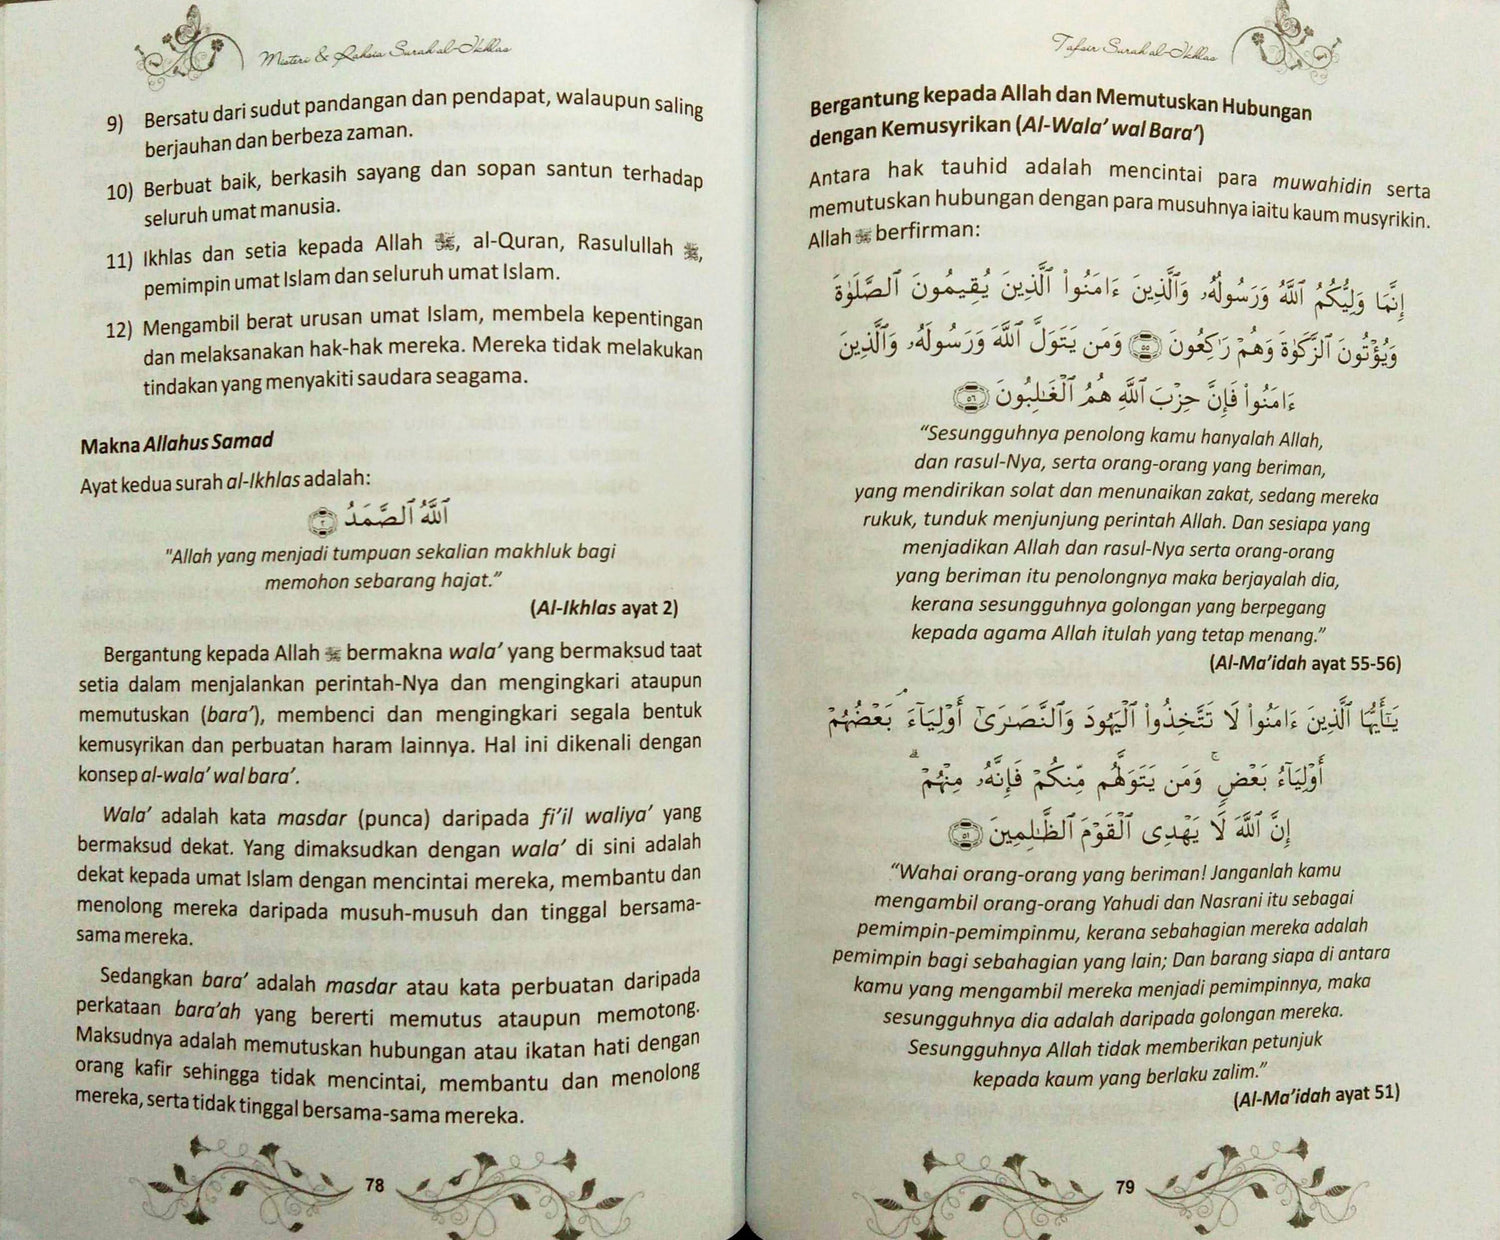 Misteri & Rahsia Surah al-Ikhlas
9) Bersatu dari sudut pandangan dan pendapat, walaupun saling
berjauhan dan berbeza zaman.
10) Berbuat baik, berkasih sayang dan sopan santun terhadap
seluruh umat manusia.
11) Ikhlas dan setia kepada Allah, al-Quran, Rasulullah,
pemimpin umat Islam dan seluruh umat Islam.
12) Mengambil berat urusan umat Islam, membela kepentingan
dan melaksanakan hak-hak mereka. Mereka tidak melakukan
tindakan yang menyakiti saudara seagama.
Makna Allahus Samad
Ayat kedua surah al-Ikhlas adalah:
ٱللَّهُ ٱلصَّمَدُ ٢
"Allah yang menjadi tumpuan sekalian makhluk bagi
memohon sebarang hajat.”
(Al-Ikhlas ayat 2)
Bergantung kepada Allah bermakna wala’ yang bermaksud taat
setia dalam menjalankan perintah-Nya dan mengingkari ataupun
memutuskan (bara’), membenci dan mengingkari segala bentuk
kemusyrikan dan perbuatan haram lainnya. Hal ini dikenali dengan
konsep al-wala’ wal bara’.
Wala’ adalah kata masdar (punca) daripada fi’il waliya’ yang
bermaksud dekat. Yang dimaksudkan dengan wala’ di sini adalah
dekat kepada umat Islam dengan mencintai mereka, membantu dan
menolong mereka daripada musuh-musuh dan tinggal bersama-
sama mereka.
Sedangkan bara’ adalah masdar atau kata perbuatan daripada
perkataan bara’ah yang bererti memutus ataupun memotong.
Maksudnya adalah memutuskan hubungan atau ikatan hati dengan
orang kafir sehingga tidak mencintai, membantu dan menolong
mereka, serta tidak tinggal bersama-sama mereka.
78
Tafsir Surah al-Ikhlas
Bergantung kepada Allah dan Memutuskan Hubungan
dengan Kemusyrikan (Al-Wala’ wal Bara’)
Antara hak tauhid adalah mencintai para muwahidin serta
memutuskan hubungan dengan para musuhnya iaitu kaum musyrikin.
Allah berfirman:
إِنَّمَا وَلِيُّكُمُ ٱللَّهُ وَرَسُولُهُۥ وَٱلَّذِينَ ءَامَنُوا۟ ٱلَّذِينَ يُقِيمُونَ ٱلصَّلَوٰةَ
وَيُؤْتُونَ ٱلزَّكَوٰةَ وَهُمْ رَٰكِعُونَ ٥٥ وَمَن يَتَوَلَّ ٱللَّهَ وَرَسُولَهُۥ وَٱلَّذِينَ
ءَامَنُوا۟ فَإِنَّ حِزْبَ ٱللَّهِ هُمُ ٱلْغَـٰلِبُونَ ٥٦
“Sesungguhnya penolong kamu hanyalah Allah,
dan rasul-Nya, serta orang-orang yang beriman,
yang mendirikan solat dan menunaikan zakat, sedang mereka
rukuk, tunduk menjunjung perintah Allah. Dan sesiapa yang
menjadikan Allah dan rasul-Nya serta orang-orang
yang beriman itu penolongnya maka berjayalah dia,
kerana sesungguhnya golongan yang berpegang
kepada agama Allah itulah yang tetap menang.”
(Al-Ma’idah ayat 55-56)
يَـٰٓأَيُّهَا ٱلَّذِينَ ءَامَنُوا۟ لَا تَتَّخِذُوا۟ ٱلْيَهُودَ وَٱلنَّصَـٰرَىٰٓ أَوْلِيَآءَ ۘ بَعْضُهُمْ
أَوْلِيَآءُ بَعْضٍ ۚ وَمَن يَتَوَلَّهُم مِّنكُمْ فَإِنَّهُۥ مِنْهُمْ ۗ
إِنَّ ٱللَّهَ لَا يَهْدِى ٱلْقَوْمَ ٱلظَّـٰلِمِينَ ٥١
“Wahai orang-orang yang beriman! Janganlah kamu
mengambil orang-orang Yahudi dan Nasrani itu sebagai
pemimpin-pemimpinmu, kerana sebahagian mereka adalah
pemimpin bagi sebahagian yang lain; Dan barang siapa di antara
kamu yang mengambil mereka menjadi pemimpinnya, maka
sesungguhnya dia adalah daripada golongan mereka.
Sesungguhnya Allah tidak memberikan petunjuk
kepada kaum yang berlaku zalim.”
(Al-Ma’idah ayat 51)
79